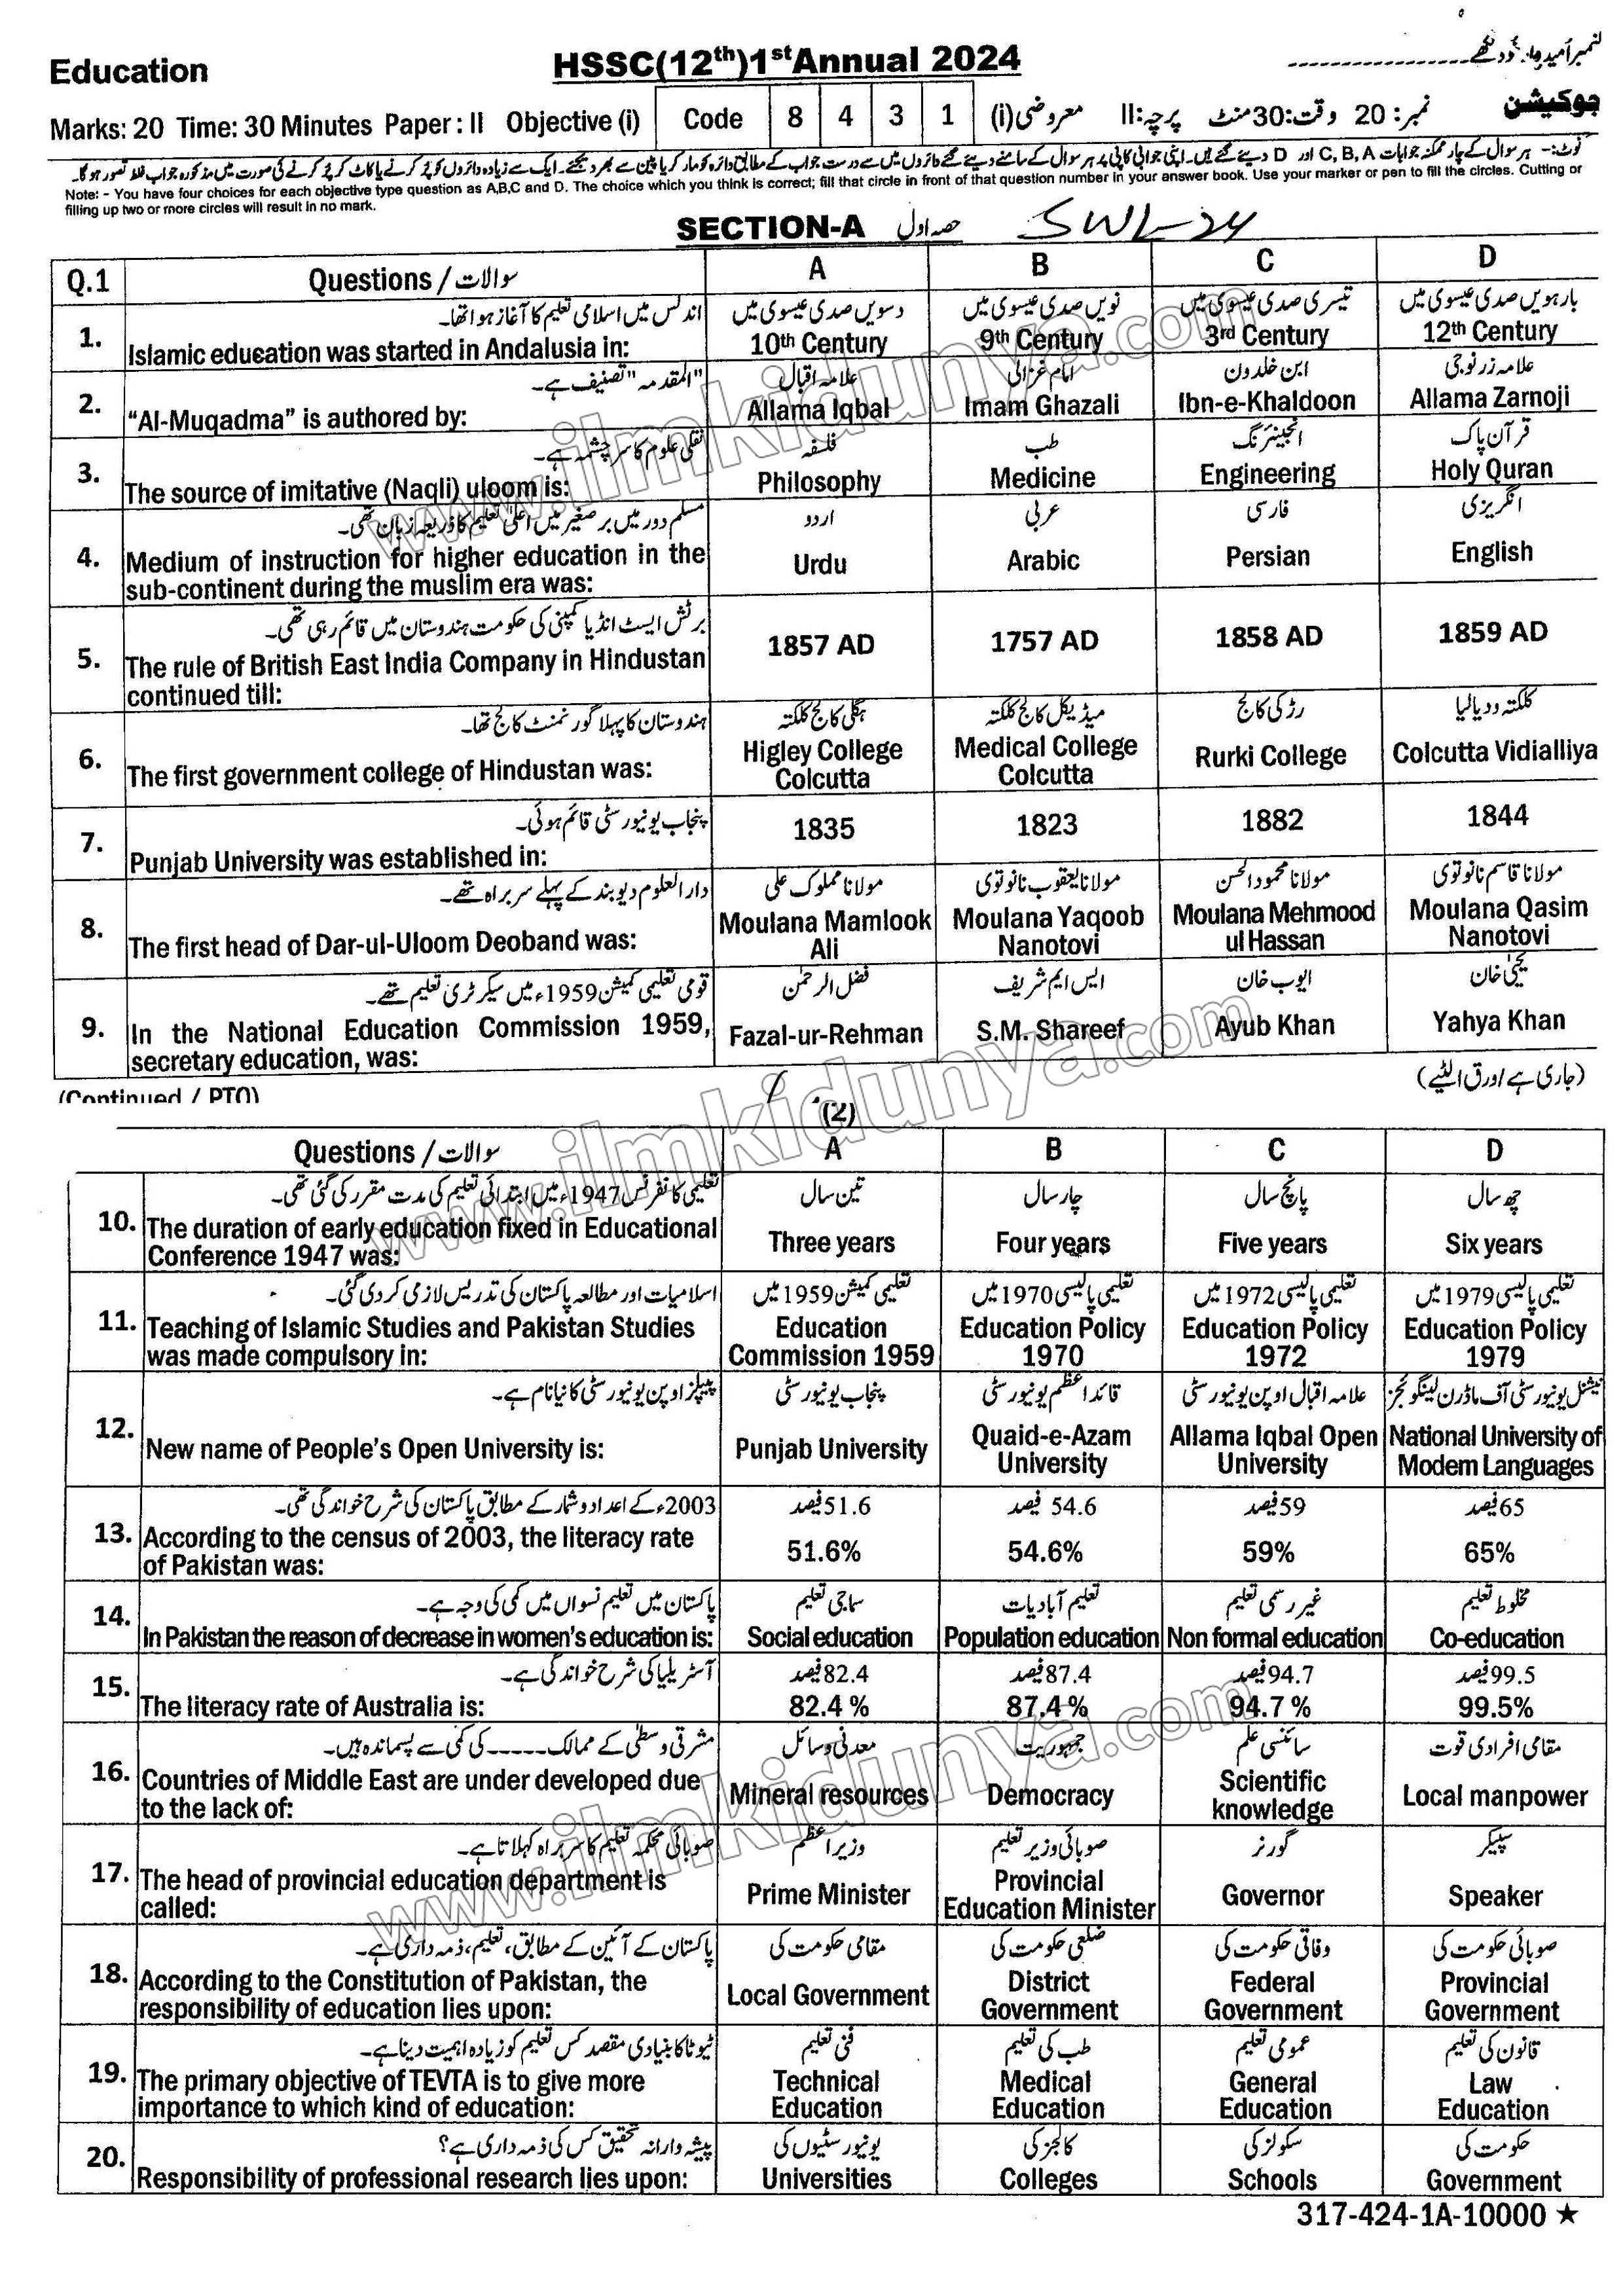 Education
HSSC(12th)1st Annual 2024
Marks: 20 Time: 30 Minutes Paper : II Objective (i) Code 8 4 3 1 معروضی(i) پرچہ:II وقت:30منٹ نمبر: 20
نوٹ:- ہر سوال کے چار ممکنہ جوابات C, B, A اور D دیئے گئے ہیں۔ اپنی جوابی کاپی پر ہر سوال کے سامنے دیئے گئے دائروں میں سے درست جواب کے مطابق دائرہ کو مارکر یا پین سے بھر دیجئے۔ ایک سے زیادہ دائروں کو پُر کرنے یا کاٹ کر پُر کرنے کی صورت میں مذکورہ جواب غلط تصور ہوگا۔
Note: - You have four choices for each objective type question as A,B,C and D. The choice which you think is correct; fill that circle in front of that question number in your answer book. Use your marker or pen to fill the circles. Cutting or
filling up two or more circles will result in no mark.
SECTION-A حصہ اول SWL-24
Q.1 Questions / سوالات A B C D
اندلس میں اسلامی تعلیم کا آغاز ہوا تھا۔ دسویں صدی عیسوی میں نویں صدی عیسوی میں تیسری صدی عیسوی میں بارہویں صدی عیسوی میں
1. Islamic education was started in Andalusia in: 10th Century 9th Century 3rd Century 12th Century
"المقدمہ" تصنیف ہے۔ علامہ اقبال امام غزالی ابن خلدون علامہ زرنوجی
2. "Al-Muqadma" is authored by: Allama Iqbal Imam Ghazali Ibn-e-Khaldoon Allama Zarnoji
نقلی علوم کا سرچشمہ ہے۔ فلسفہ طب انجینئرنگ قرآن پاک
3. The source of imitative (Naqli) uloom is: Philosophy Medicine Engineering Holy Quran
مسلم دور میں برصغیر میں اعلیٰ تعلیم کا ذریعہ زبان تھی۔ اردو عربی فارسی انگریزی
4. Medium of instruction for higher education in the Urdu Arabic Persian English
sub-continent during the muslim era was:
برٹش ایسٹ انڈیا کمپنی کی حکومت ہندوستان میں قائم رہی تھی۔
5. The rule of British East India Company in Hindustan 1857 AD 1757 AD 1858 AD 1859 AD
continued till:
ہندوستان کا پہلا گورنمنٹ کالج تھا۔ ہگلی کالج کلکتہ میڈیکل کالج کلکتہ رڑکی کالج کلکتہ ودیالیا
6. The first government college of Hindustan was: Higley College Medical College Rurki College Colcutta Vidialliya
Colcutta Colcutta
پنجاب یونیورسٹی قائم ہوئی۔
7. Punjab University was established in: 1835 1823 1882 1844
دارالعلوم دیوبند کے پہلے سربراہ تھے۔ مولانا مملوک علی مولانا یعقوب نانوتوی مولانا محمود الحسن مولانا قاسم نانوتوی
8. The first head of Dar-ul-Uloom Deoband was: Moulana Mamlook Moulana Yaqoob Moulana Mehmood Moulana Qasim
Ali Nanotovi ul Hassan Nanotovi
قومی تعلیمی کمیشن 1959ء میں سیکرٹری تعلیم تھے۔ فضل الرحمٰن ایس ایم شریف ایوب خان یحیٰی خان
9. In the National Education Commission 1959, Fazal-ur-Rehman S.M. Shareef Ayub Khan Yahya Khan
secretary education, was:
(Continued / PTO) (جاری ہے اورق الٹیے)
(2)
Questions / سوالات A B C D
تعلیمی کانفرنس 1947ء میں ابتدائی تعلیم کی مدت مقرر کی گئی تھی۔ تین سال چار سال پانچ سال چھ سال
10. The duration of early education fixed in Educational Three years Four years Five years Six years
Conference 1947 was:
اسلامیات اور مطالعہ پاکستان کی تدریس لازمی کر دی گئی۔ تعلیمی کمیشن 1959 میں تعلیمی پالیسی 1970 میں تعلیمی پالیسی 1972 میں تعلیمی پالیسی 1979 میں
11. Teaching of Islamic Studies and Pakistan Studies Education Education Policy Education Policy Education Policy
was made compulsory in: Commission 1959 1970 1972 1979
پیپلز اوپن یونیورسٹی کا نیا نام ہے۔ پنجاب یونیورسٹی قائداعظم یونیورسٹی علامہ اقبال اوپن یونیورسٹی نیشنل یونیورسٹی آف ماڈرن لینگوئجز
12. New name of People's Open University is: Punjab University Quaid-e-Azam Allama Iqbal Open National University of
University University Modern Languages
2003ء کے اعداد و شمار کے مطابق پاکستان کی شرح خواندگی تھی۔ 51.6فیصد 54.6 فیصد 59فیصد 65فیصد
13. According to the census of 2003, the literacy rate 51.6% 54.6% 59% 65%
of Pakistan was:
پاکستان میں تعلیم نسواں میں کمی کی وجہ ہے۔ سماجی تعلیم تعلیم آبادیات غیر رسمی تعلیم مخلوط تعلیم
14. In Pakistan the reason of decrease in women's education is: Social education Population education Non formal education Co-education
آسٹریلیا کی شرح خواندگی ہے۔ 82.4فیصد 87.4فیصد 94.7فیصد 99.5فیصد
15. The literacy rate of Australia is: 82.4 % 87.4 % 94.7 % 99.5%
مشرق وسطیٰ کے ممالک ----- کی کمی سے پسماندہ ہیں۔ معدنی وسائل جمہوریت سائنسی علم مقامی افرادی قوت
16. Countries of Middle East are under developed due Mineral resources Democracy Scientific Local manpower
to the lack of: knowledge
صوبائی محکمہ تعلیم کا سربراہ کہلاتا ہے۔ وزیراعظم صوبائی وزیر تعلیم گورنر سپیکر
17. The head of provincial education department is Prime Minister Provincial Governor Speaker
called: Education Minister
پاکستان کے آئین کے مطابق، تعلیم، ذمہ داری ہے۔ مقامی حکومت کی ضلعی حکومت کی وفاقی حکومت کی صوبائی حکومت کی
18. According to the Constitution of Pakistan, the Local Government District Federal Provincial
responsibility of education lies upon: Government Government Government
ٹیوٹا کا بنیادی مقصد کس تعلیم کو زیادہ اہمیت دینا ہے۔ فنی تعلیم طب کی تعلیم عمومی تعلیم قانون کی تعلیم
19. The primary objective of TEVTA is to give more Technical Medical General Law
importance to which kind of education: Education Education Education Education
پیشہ وارانہ تحقیق کس کی ذمہ داری ہے؟ یونیورسٹیوں کی کالجز کی سکولز کی حکومت کی
20. Responsibility of professional research lies upon: Universities Colleges Schools Government
317-424-1A-10000 ★
www.ilmkidunya.com
www.ilmkidunya.com
www.ilmkidunya.com